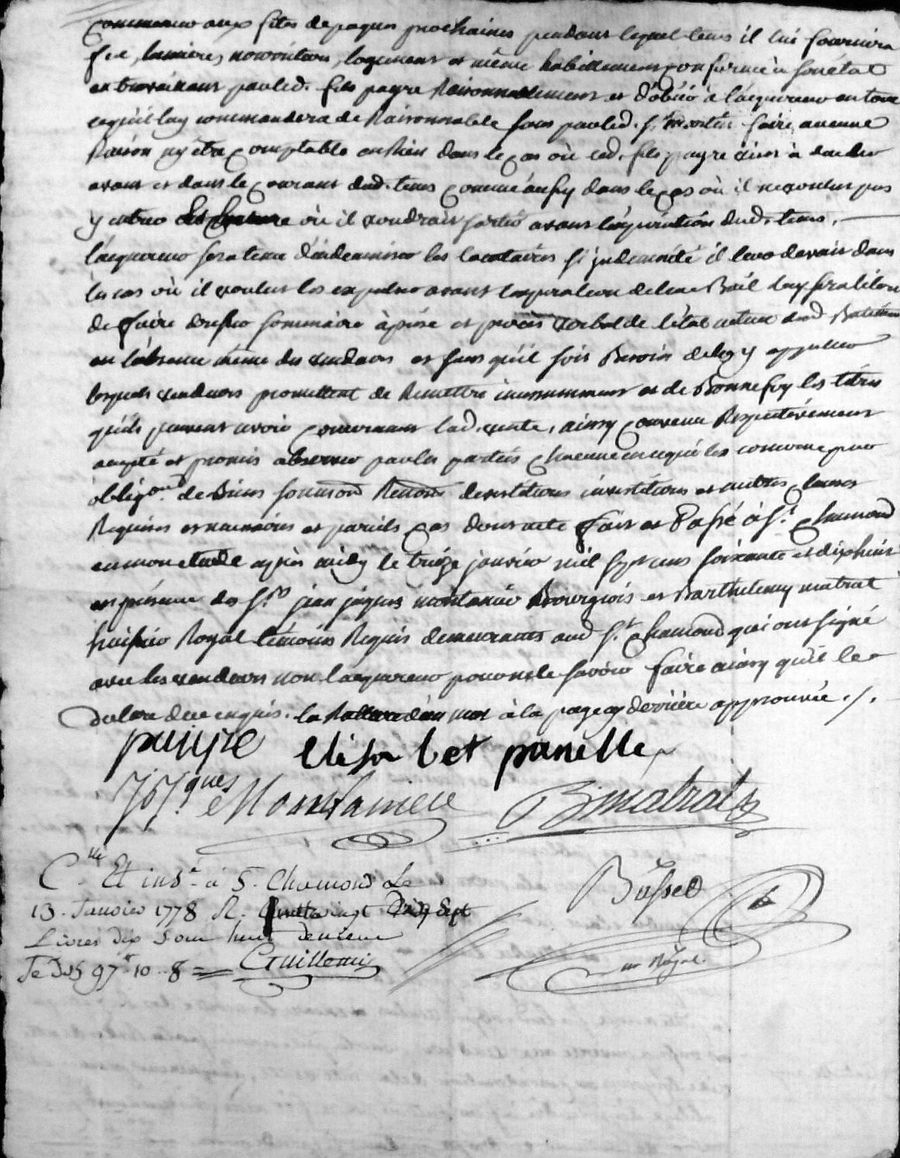 commencer aux fetes de paques prochaines pendant lequel tems il lui fournira
feu, lumiere nourriture, logement et même habillement conforme à son etat
en travaillant par led. fils payre Raisonnablement et d'obéir à l'acquereur en tout
ce qu'il luy commandera de Raisonnable sans que led. sr. faire aucune
Raison ny être comptable en Rien dans le cas où led. fils payre
avant et dans le courant dud. tems comme aussy dans le cas où il ne voulut pas
y entrer où il voudrait sortir avant l'expiration dud. tems.
l'acquereur sera tenu d'indemniser les locataires si indemnité il leur devait dans
le cas où il voulut les expulser avant l'expiration de leur Bail luy sera libre
de faire dresser sommaire aprise et procès verbal de l'état actuel dud. Batiment
en l'absence même des vendeurs et sans qu'il soit Besoin de les y appeller
lesquels vendeurs promettent de Remettre incessamment et de Bonne foy les titres
qu'ils peuvent avoir concernant lad. vente, ainsy convenu Respectivement
accepté et promis observer par les parties chacune en ce qui les concerne par
obligon. de Biens soumon. Renon. et autres clauses
Requises et necessaires et pareils cas dont acte fait et Passé à St. Chamond
en mon etude après midy le treize janvier mil sept cens soixante et dix huit
en présence des Srs jean jaques montanier Bourgeois et Barthelemy matrat
huissier Royal temoins Requis demeurants aud. St. Chamond qui ont signé
avec les vendeurs non l'acquereur pour ne le savoir faire ainsy qu'il le
declare de ce enquis. la Rature d'un mot à la page derrière approuvée ./.
payre elisabet parielle
J. Jques Montanier B matrat
Clé Et insé. à S. Chamond Le
13. Janvier 1778 R. quattrevingt Dix Sept
Livres dix Sous huit deniers
97lt 10 .. 8 = Guillemin
Bussed
nre Royal